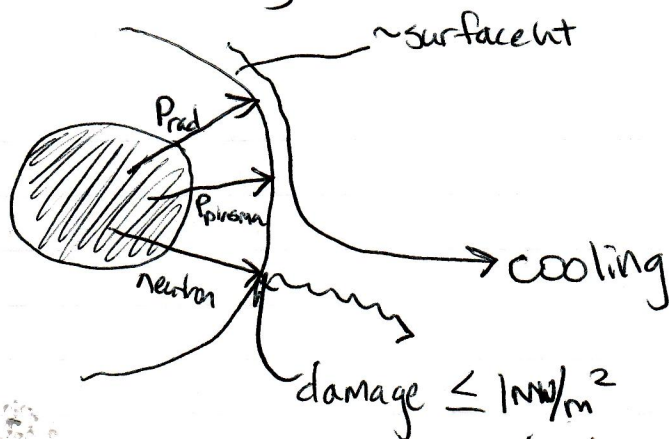 ~surface ht
Prad
Pplasma
neutron
cooling
damage ≤ 1 MW/m²